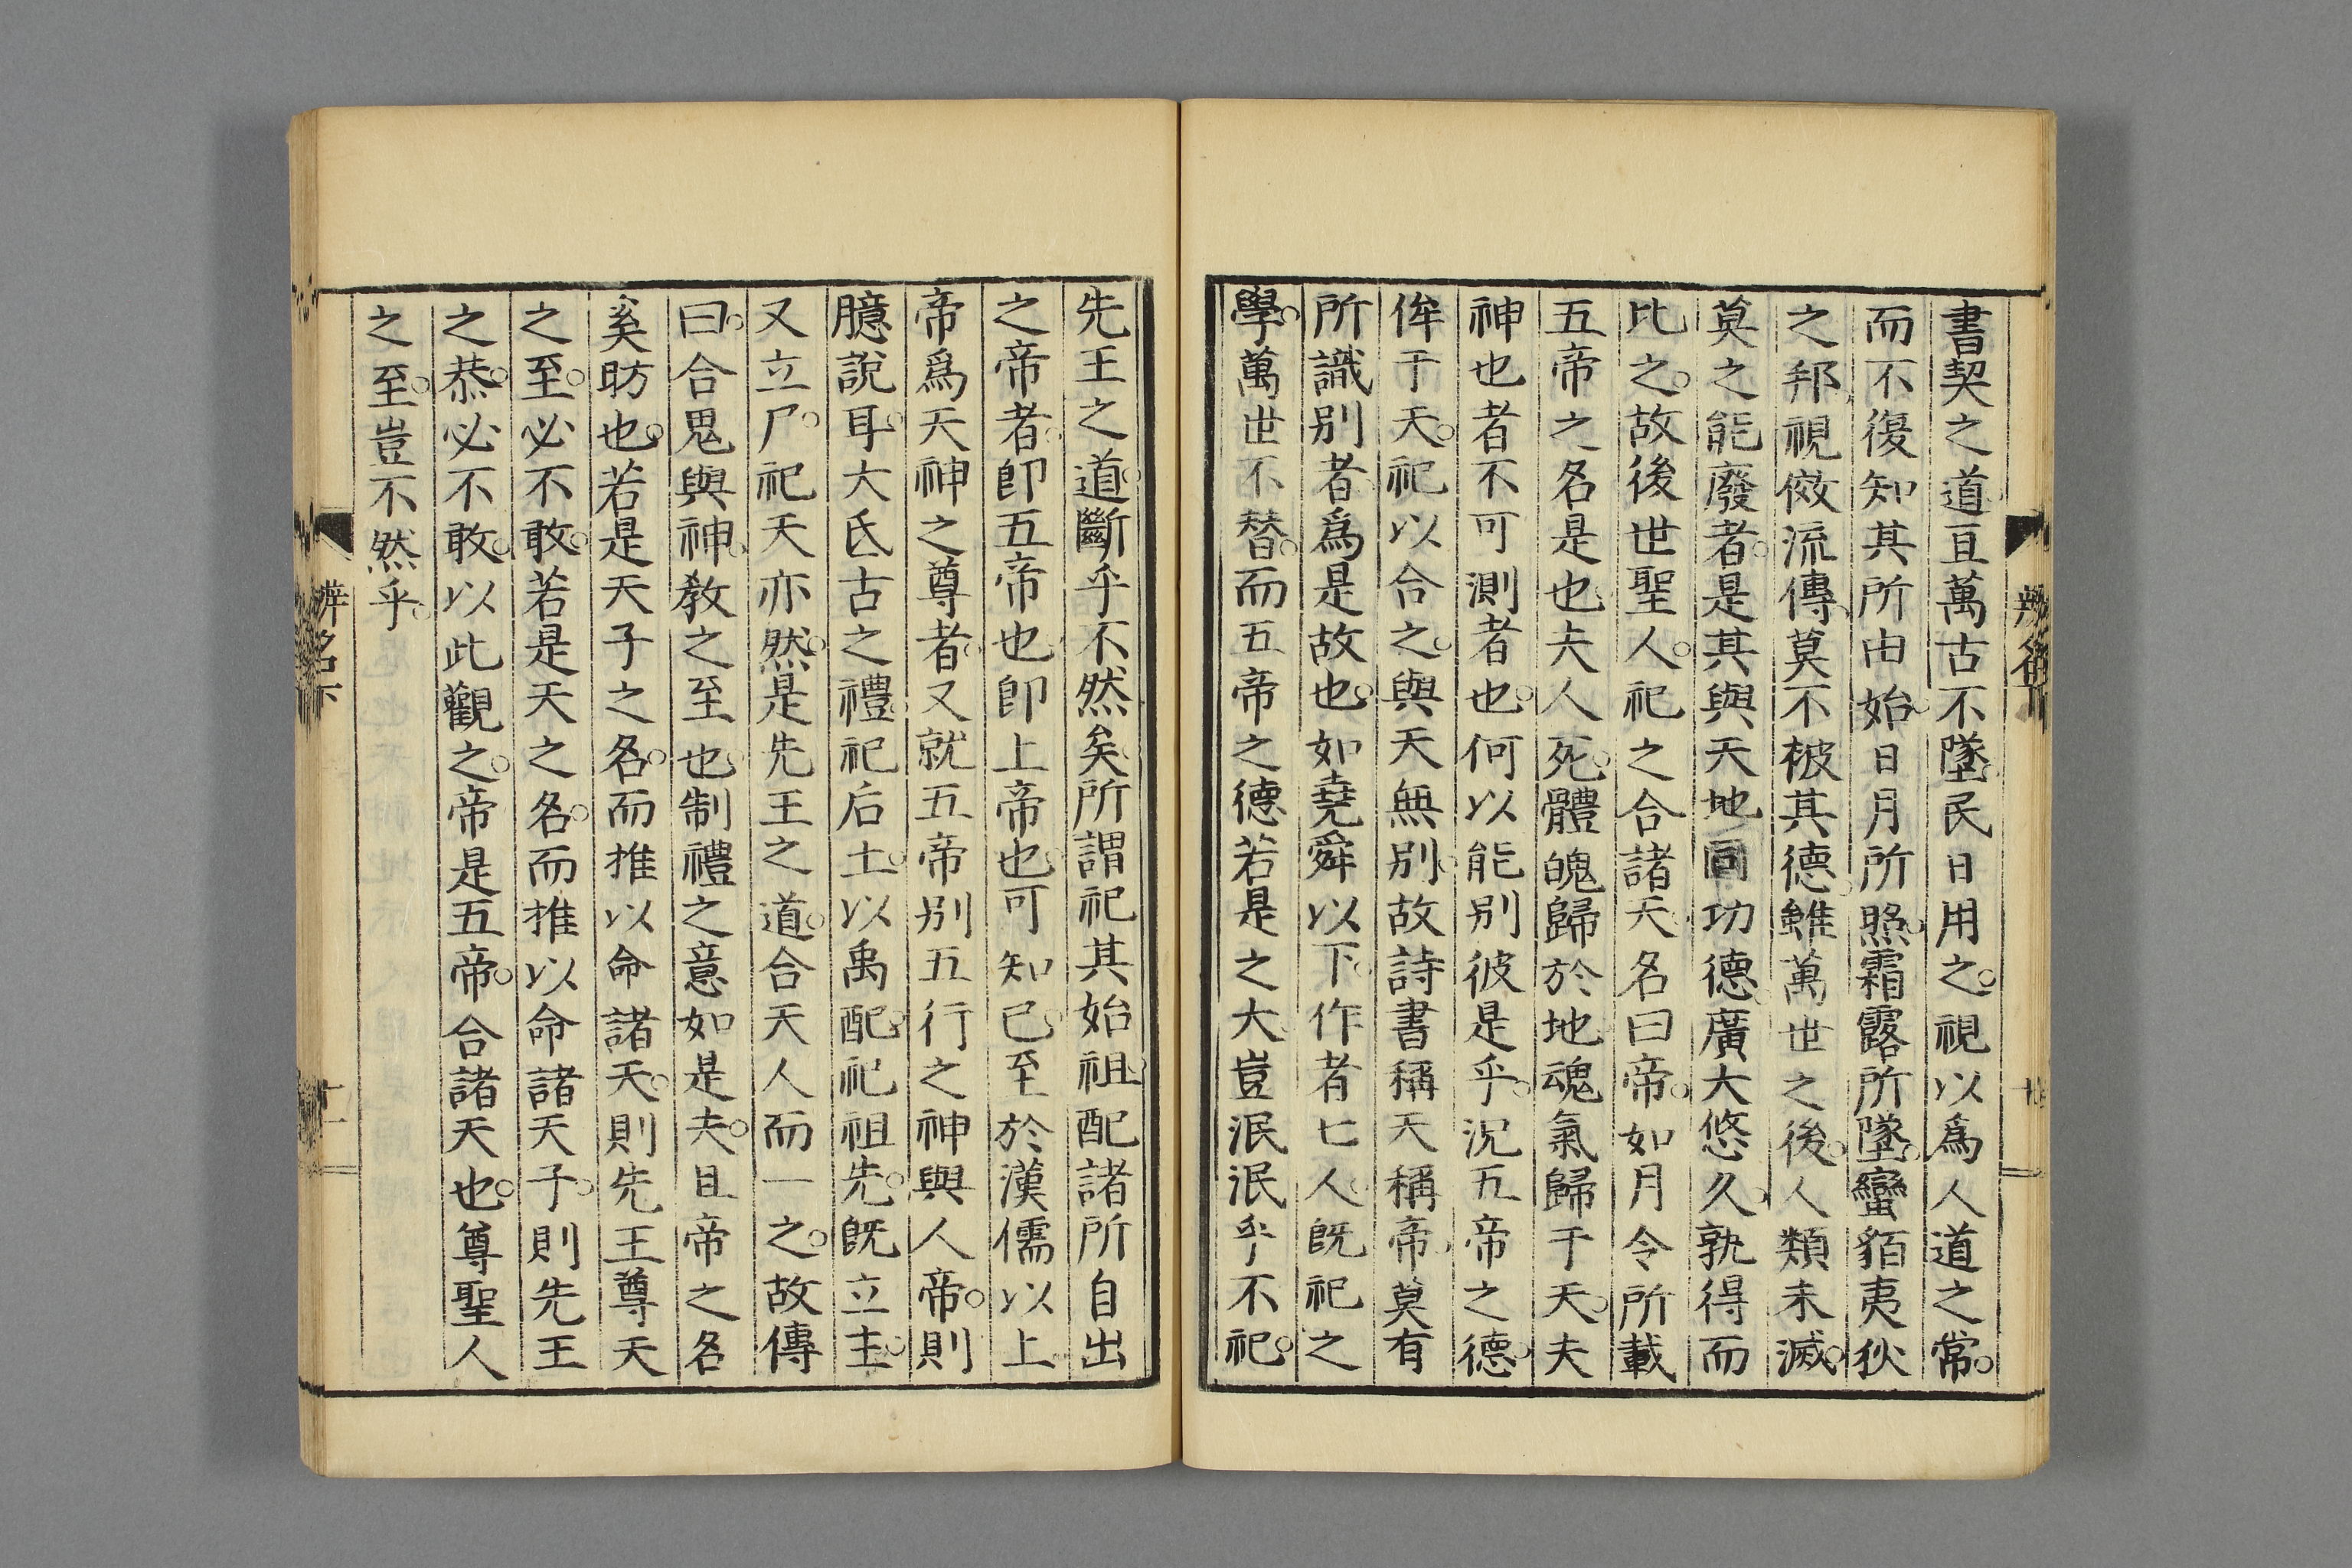 書契之道亘萬古不墜民日用之。視以爲人道之常。
而不復知其所由始。日月所照。霜露所墜。蠻貊夷狄
之邦。視傚流傳。莫不被其德。雖萬世之後。人類未滅。
莫之能廢者。是其與天地同功。德廣大悠久。孰得而
比之。故後世聖人。祀之合諸天。名曰帝。如月令所載
五帝之名是也。夫人死。體魄歸於地。魂氣歸于天。夫
神也者不可測者也。何以能別彼是乎。況五帝之德。
侔于天。祀以合之。與天無別。故詩書稱天稱帝。莫有
所識別者。爲是故也。如堯舜以下。作者七人。既祀之
學。萬世不替。而五帝之德若是之大。豈泯泯乎不祀。
先王之道。斷乎不然矣。所謂祀其始祖。配諸所自出
之帝者。卽五帝也。卽上帝也。可知已。至於漢儒以上
帝爲天神之尊者。又就五帝別五行之神與人帝。則
臆說耳。大氐古之禮。祀后土。以禹配。祀祖先。既立主。
又立尸。祀天亦然。是先王之道。合天人而一之。故傳
曰。合鬼與神。教之至也。制禮之意如是夫。且帝之名
奚昉也。若是天子之名。而推以命諸天。則先王尊天
之至。必不敢。若是天之名。而推以命諸天子。則先王
之恭。必不敢。以此觀之。帝是五帝。合諸天也。尊聖人
之至。豈不然乎。
辨名下
辨名下